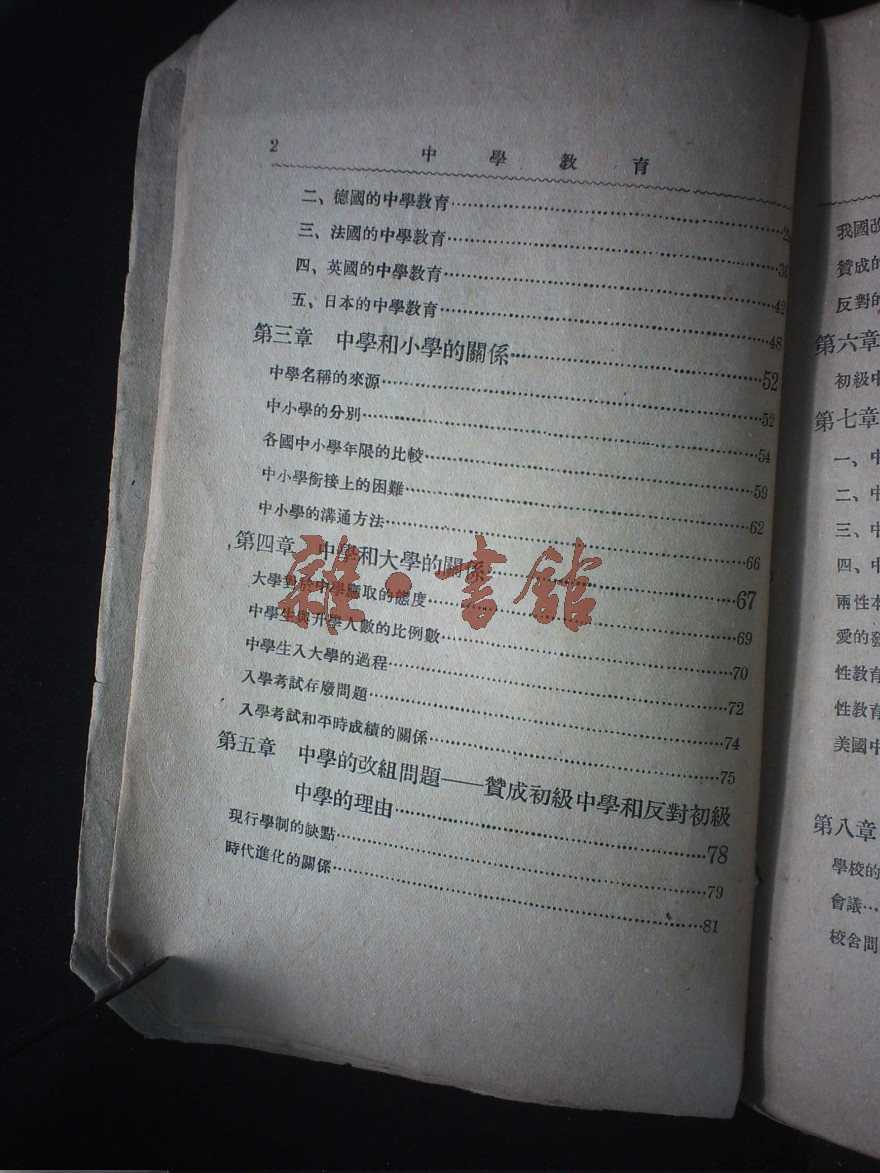 2 中學教育
二、德國的中學教育
三、法國的中學教育……30
四、英國的中學教育……42
五、日本的中學教育……48
第三章 中學和小學的關係……52
中學名稱的來源……52
中小學的分別……54
各國中小學年限的比較……59
中小學銜接上的困難……62
中小學的溝通方法……66
第四章 中學和大學的關係……67
大學對於中學應取的態度……69
中學生與升學人數的比例數……70
中學生入大學的過程……72
入學考試存廢問題……74
入學考試和平時成績的關係……75
第五章 中學的改組問題——贊成初級中學和反對初級
中學的理由……78
現行學制的缺點……79
時代進化的關係……81
雜·書館
我國改
贊成的
反對的
第六章
初級中
第七章
一、中
二、中
三、中
四、中
兩性本
愛的發
性教育
性教育
美國中
第八章
學校的
會議…
校舍問